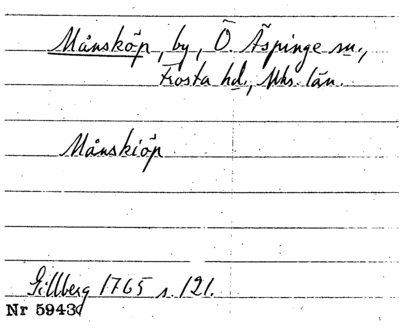 Månsköp, by, Ö. Äspinge sn.,
Frosta hd., Mhs. län.
Månskiöp
Gillberg 1765 s. 121.
Nr 5943